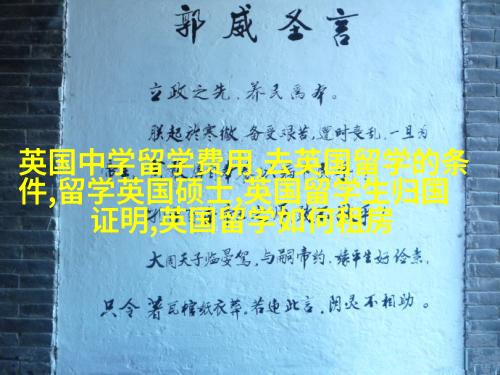 郭威圣言
立政之先，养民为本。
朕起于寒微，备受艰苦，遭时丧乱，一旦为
英国中学留学费用,去英国留学的条
件,留学英国硕士,英国留学生归国
证明,英国留学如何租房
大周天子临晏驾，与嗣帝约，缘平生好俭素，
只令著瓦棺纸衣葬。若违此言，阴灵不相助。